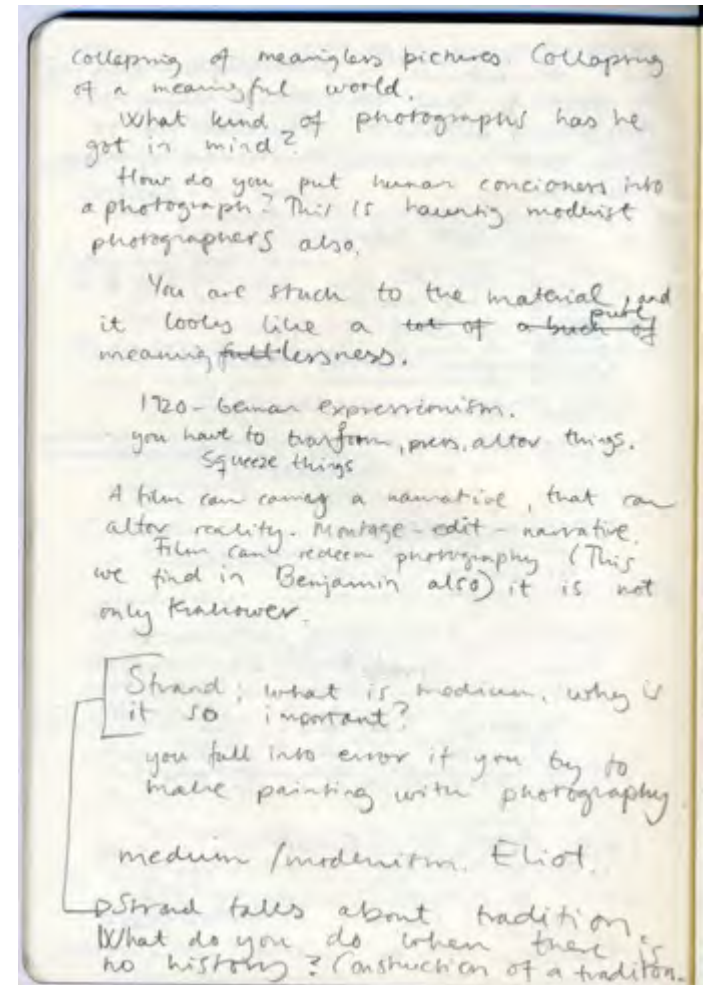 Collapsing of meaningless pictures. Collapsing
of a meaningful world.
What kind of photographs has he
got in mind?
How do you put human conciouners into
a photograph? This is haunting modernist
photographers also.
You are stuck to the material, and
it looks like a lot of a buch of pure
meaningfulllessness.
1920 - German expressionism.
you have to transform, press, alter things.
Squeeze things
A film can carry a narrative, that can
alter reality. Montage - edit - narrative.
Film can redeem photography (This
we find in Benjamin also) it is not
only Krakower.
Strand; what is medium, why is
it so important?
you fall into error if you try to
make painting with photography.
medium / modernism. Eliot.
Strand talks about tradition.
What do you do when there is
no history? Construction of a traditon.